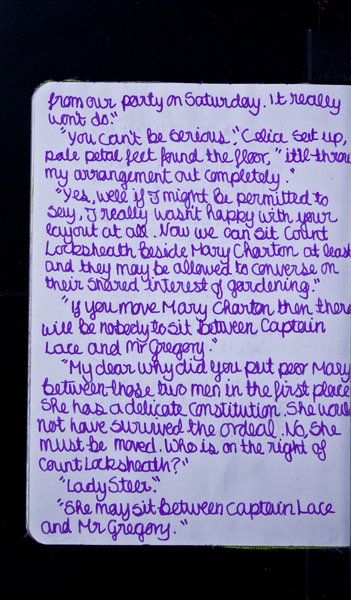 from our party on Saturday. It really
won't do."
"You can't be serious," Celia sat up,
pale petal feet found the floor, "it'll throw
my arrangement out completely."
"Yes, well if I might be permitted to
say, I really wasn't happy with your
layout at all. Now we can sit Count
Locksheath beside Mary Charton at least
and they may be allowed to converse on
their shared interest of gardening."
"If you move Mary Charton then there
will be nobody to sit between Captain
Lace and Mr Gregory."
"My dear why did you put poor Mary
between those two men in the first place
She has a delicate constitution. She would
not have survived the ordeal. No, she
must be moved. Who is on the right of
Count Locksheath?"
"Lady Steer."
"She may sit between Captain Lace
and Mr Gregory."